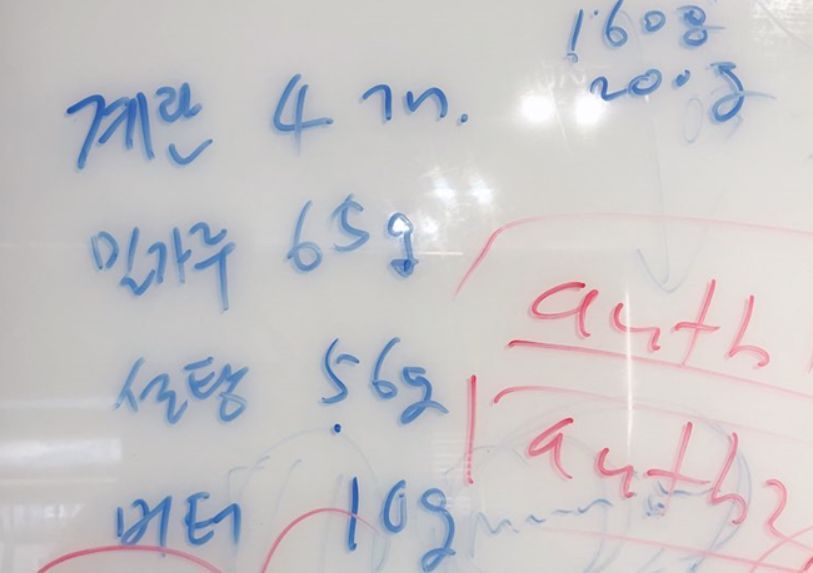 160g
200g
계란 4개.
밀가루 65g
설탕 56g
버터 10g
auth
auth2